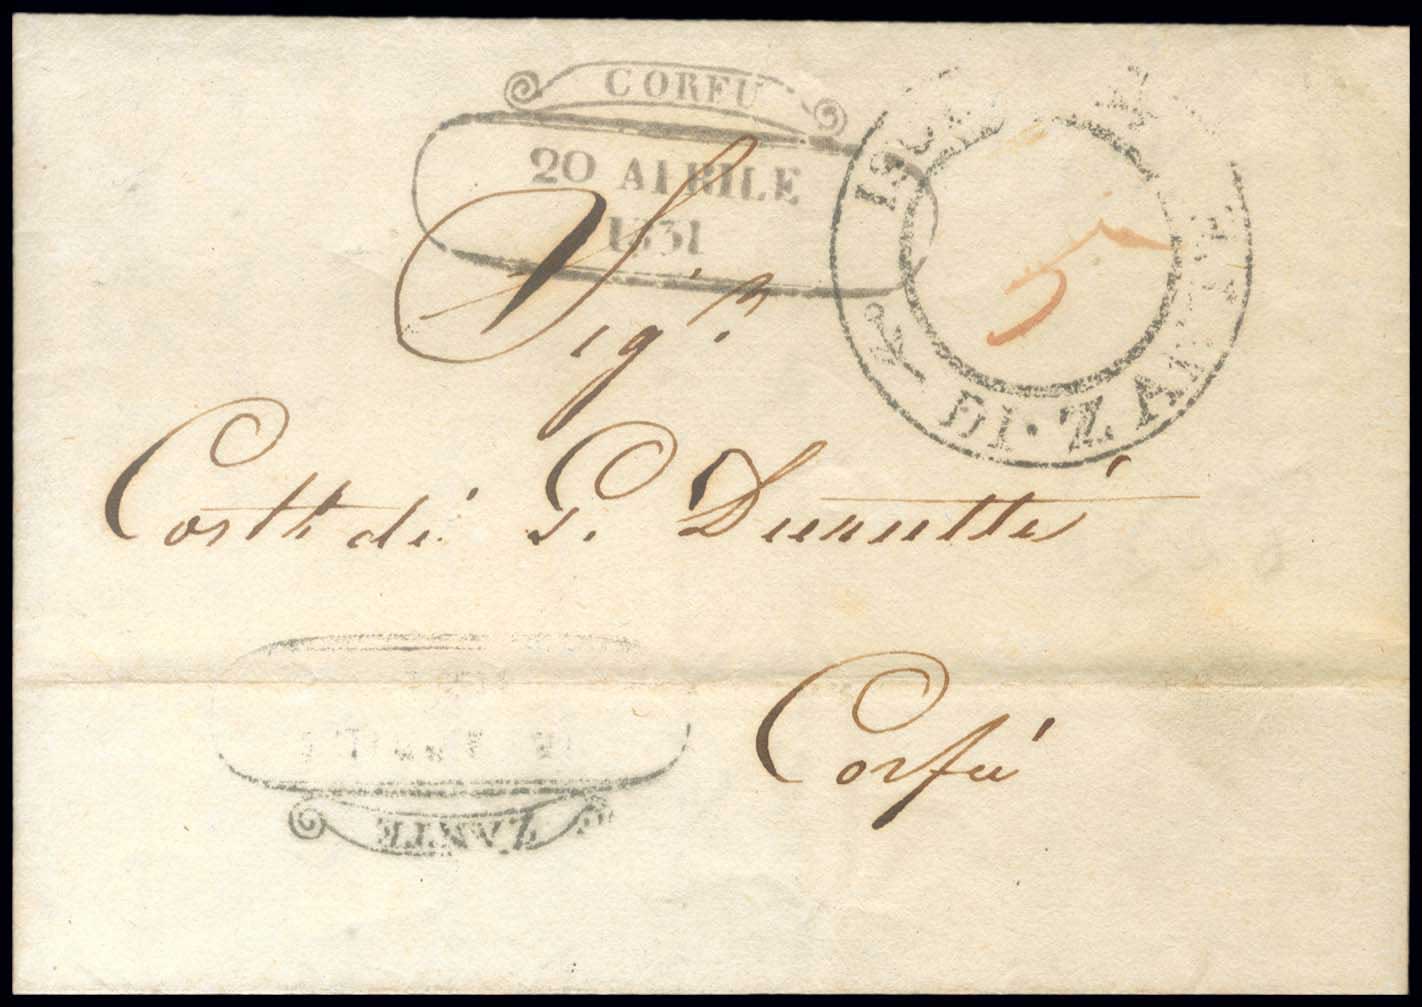 CORFU
20 APRILE
1831
ISOLA
DI · ZANTE
5
Sigr.
Costt. di G. Durutti
Corfú
ZANTE